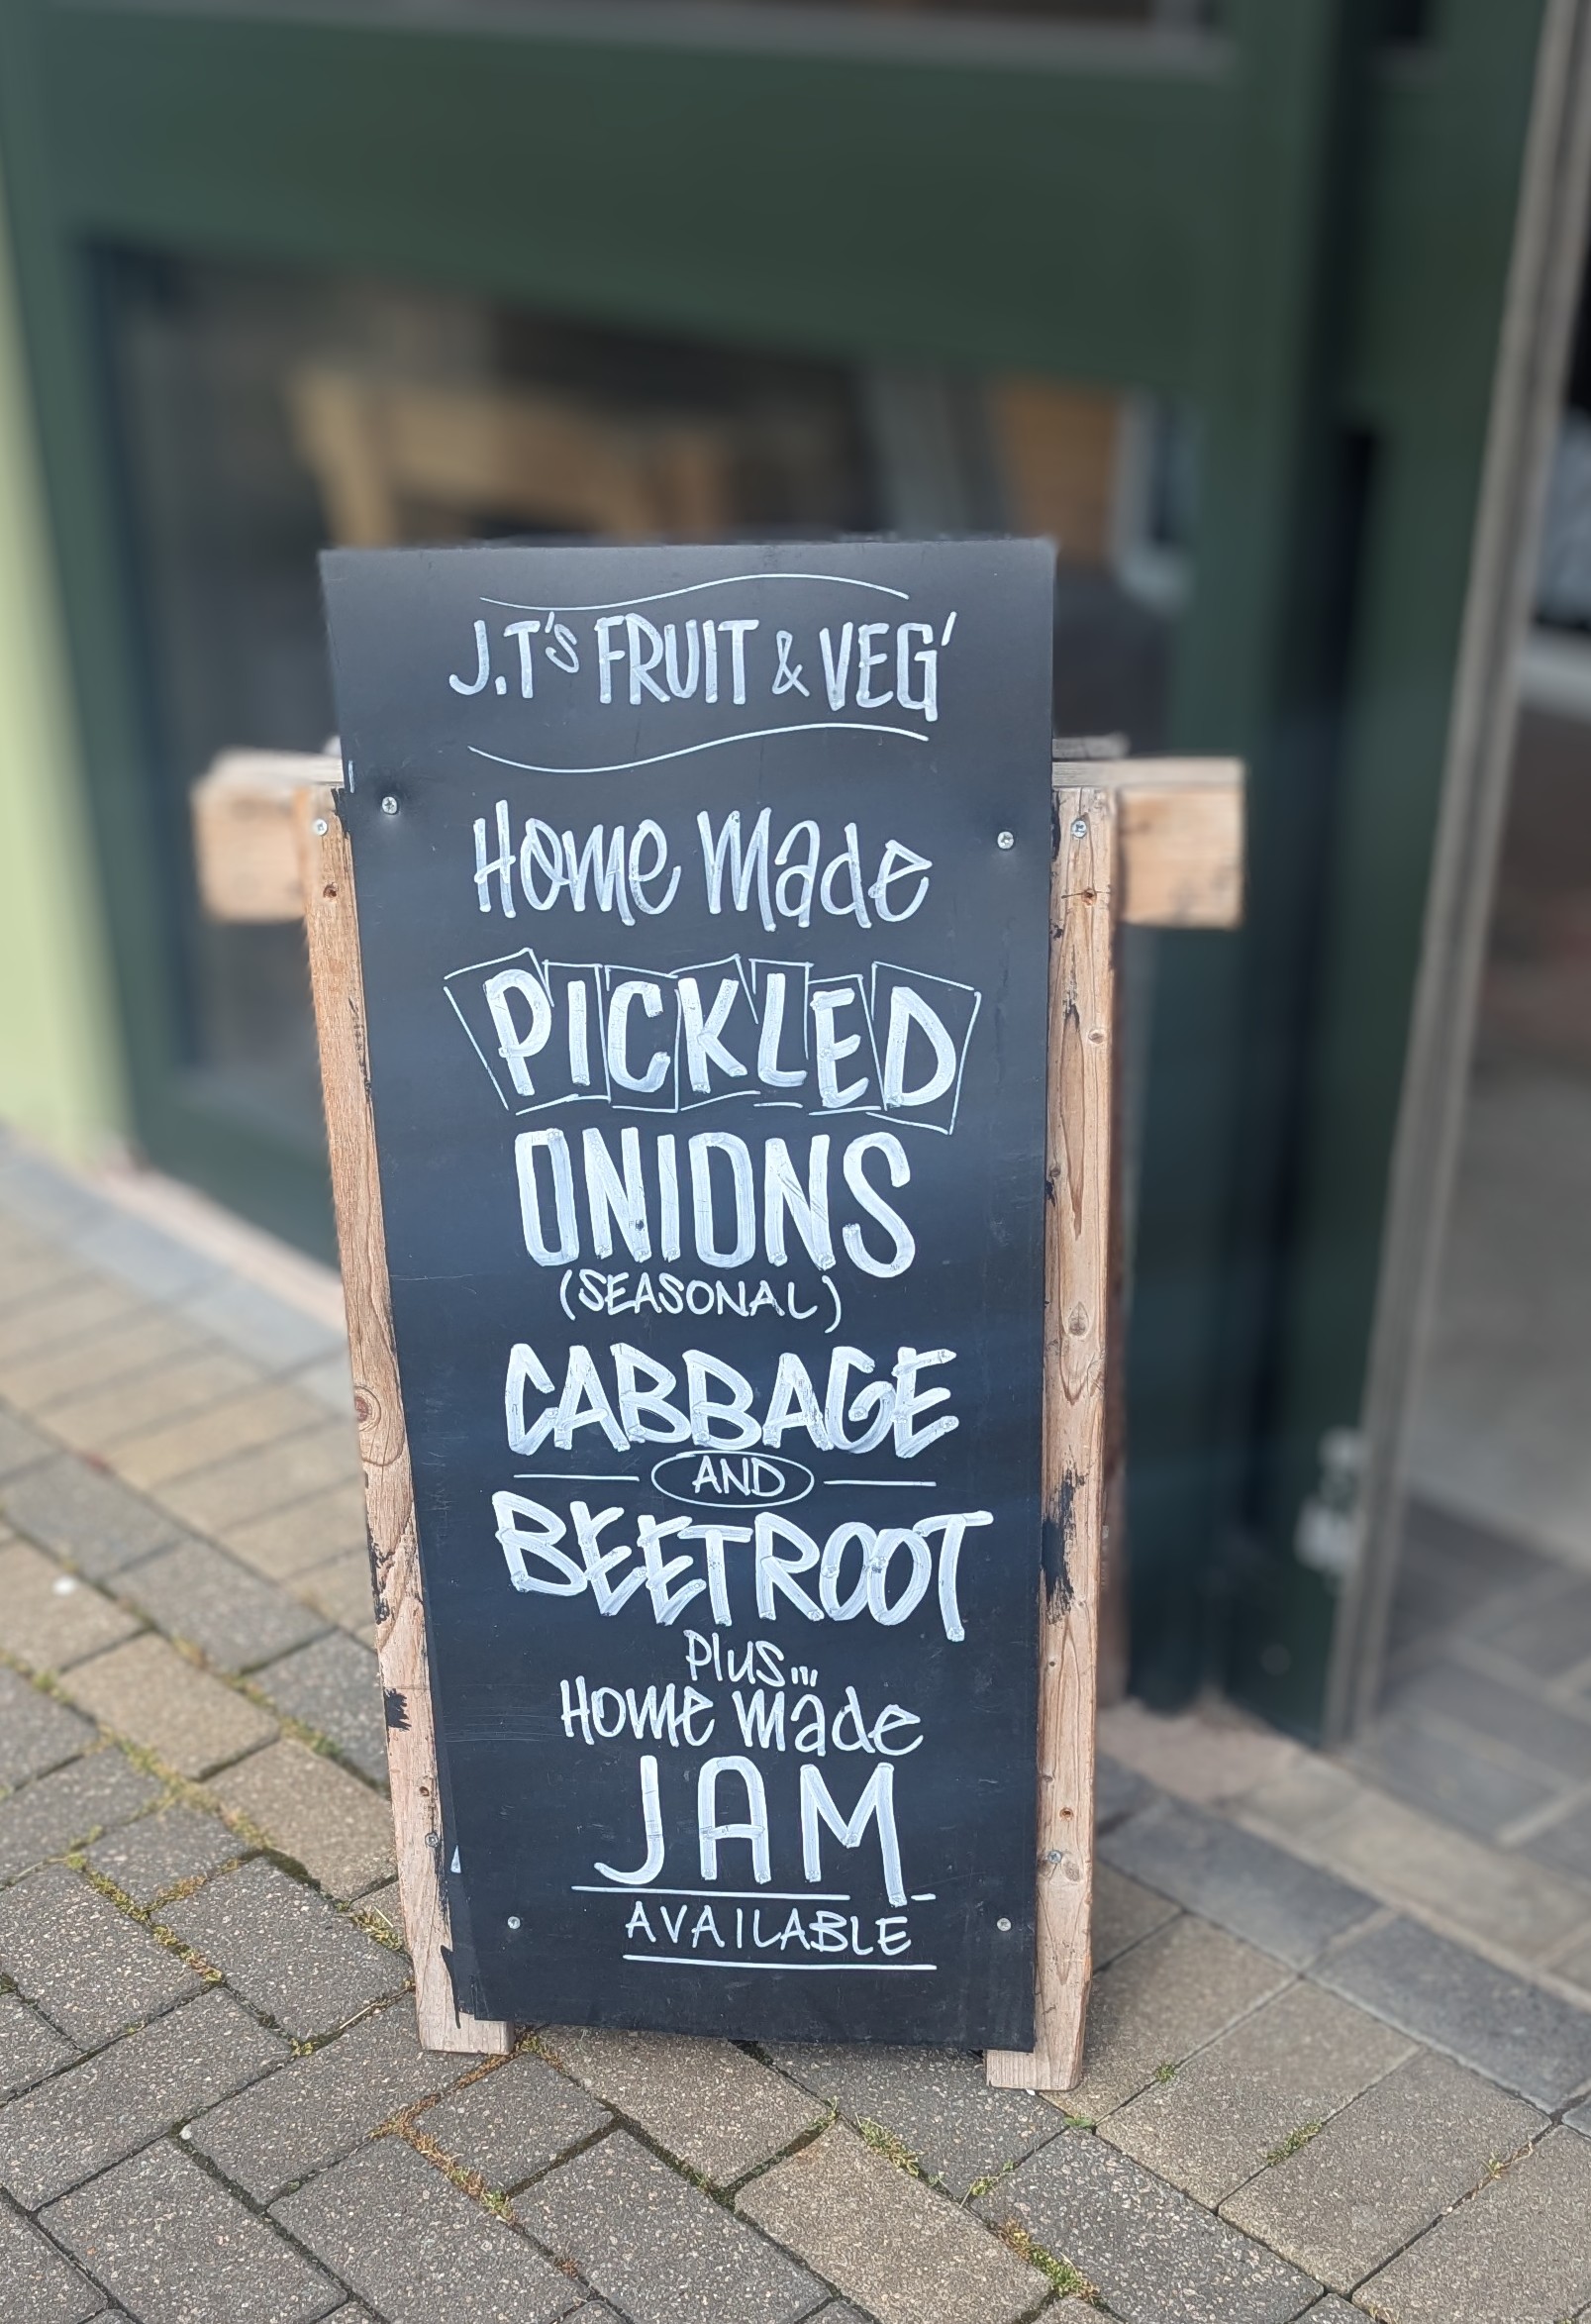 J.T's FRUIT & VEG'
Home Made
PICKLED
ONIONS
(SEASONAL)
CABBAGE
AND
BEETROOT
Plus...
Home Made
JAM
AVAILABLE